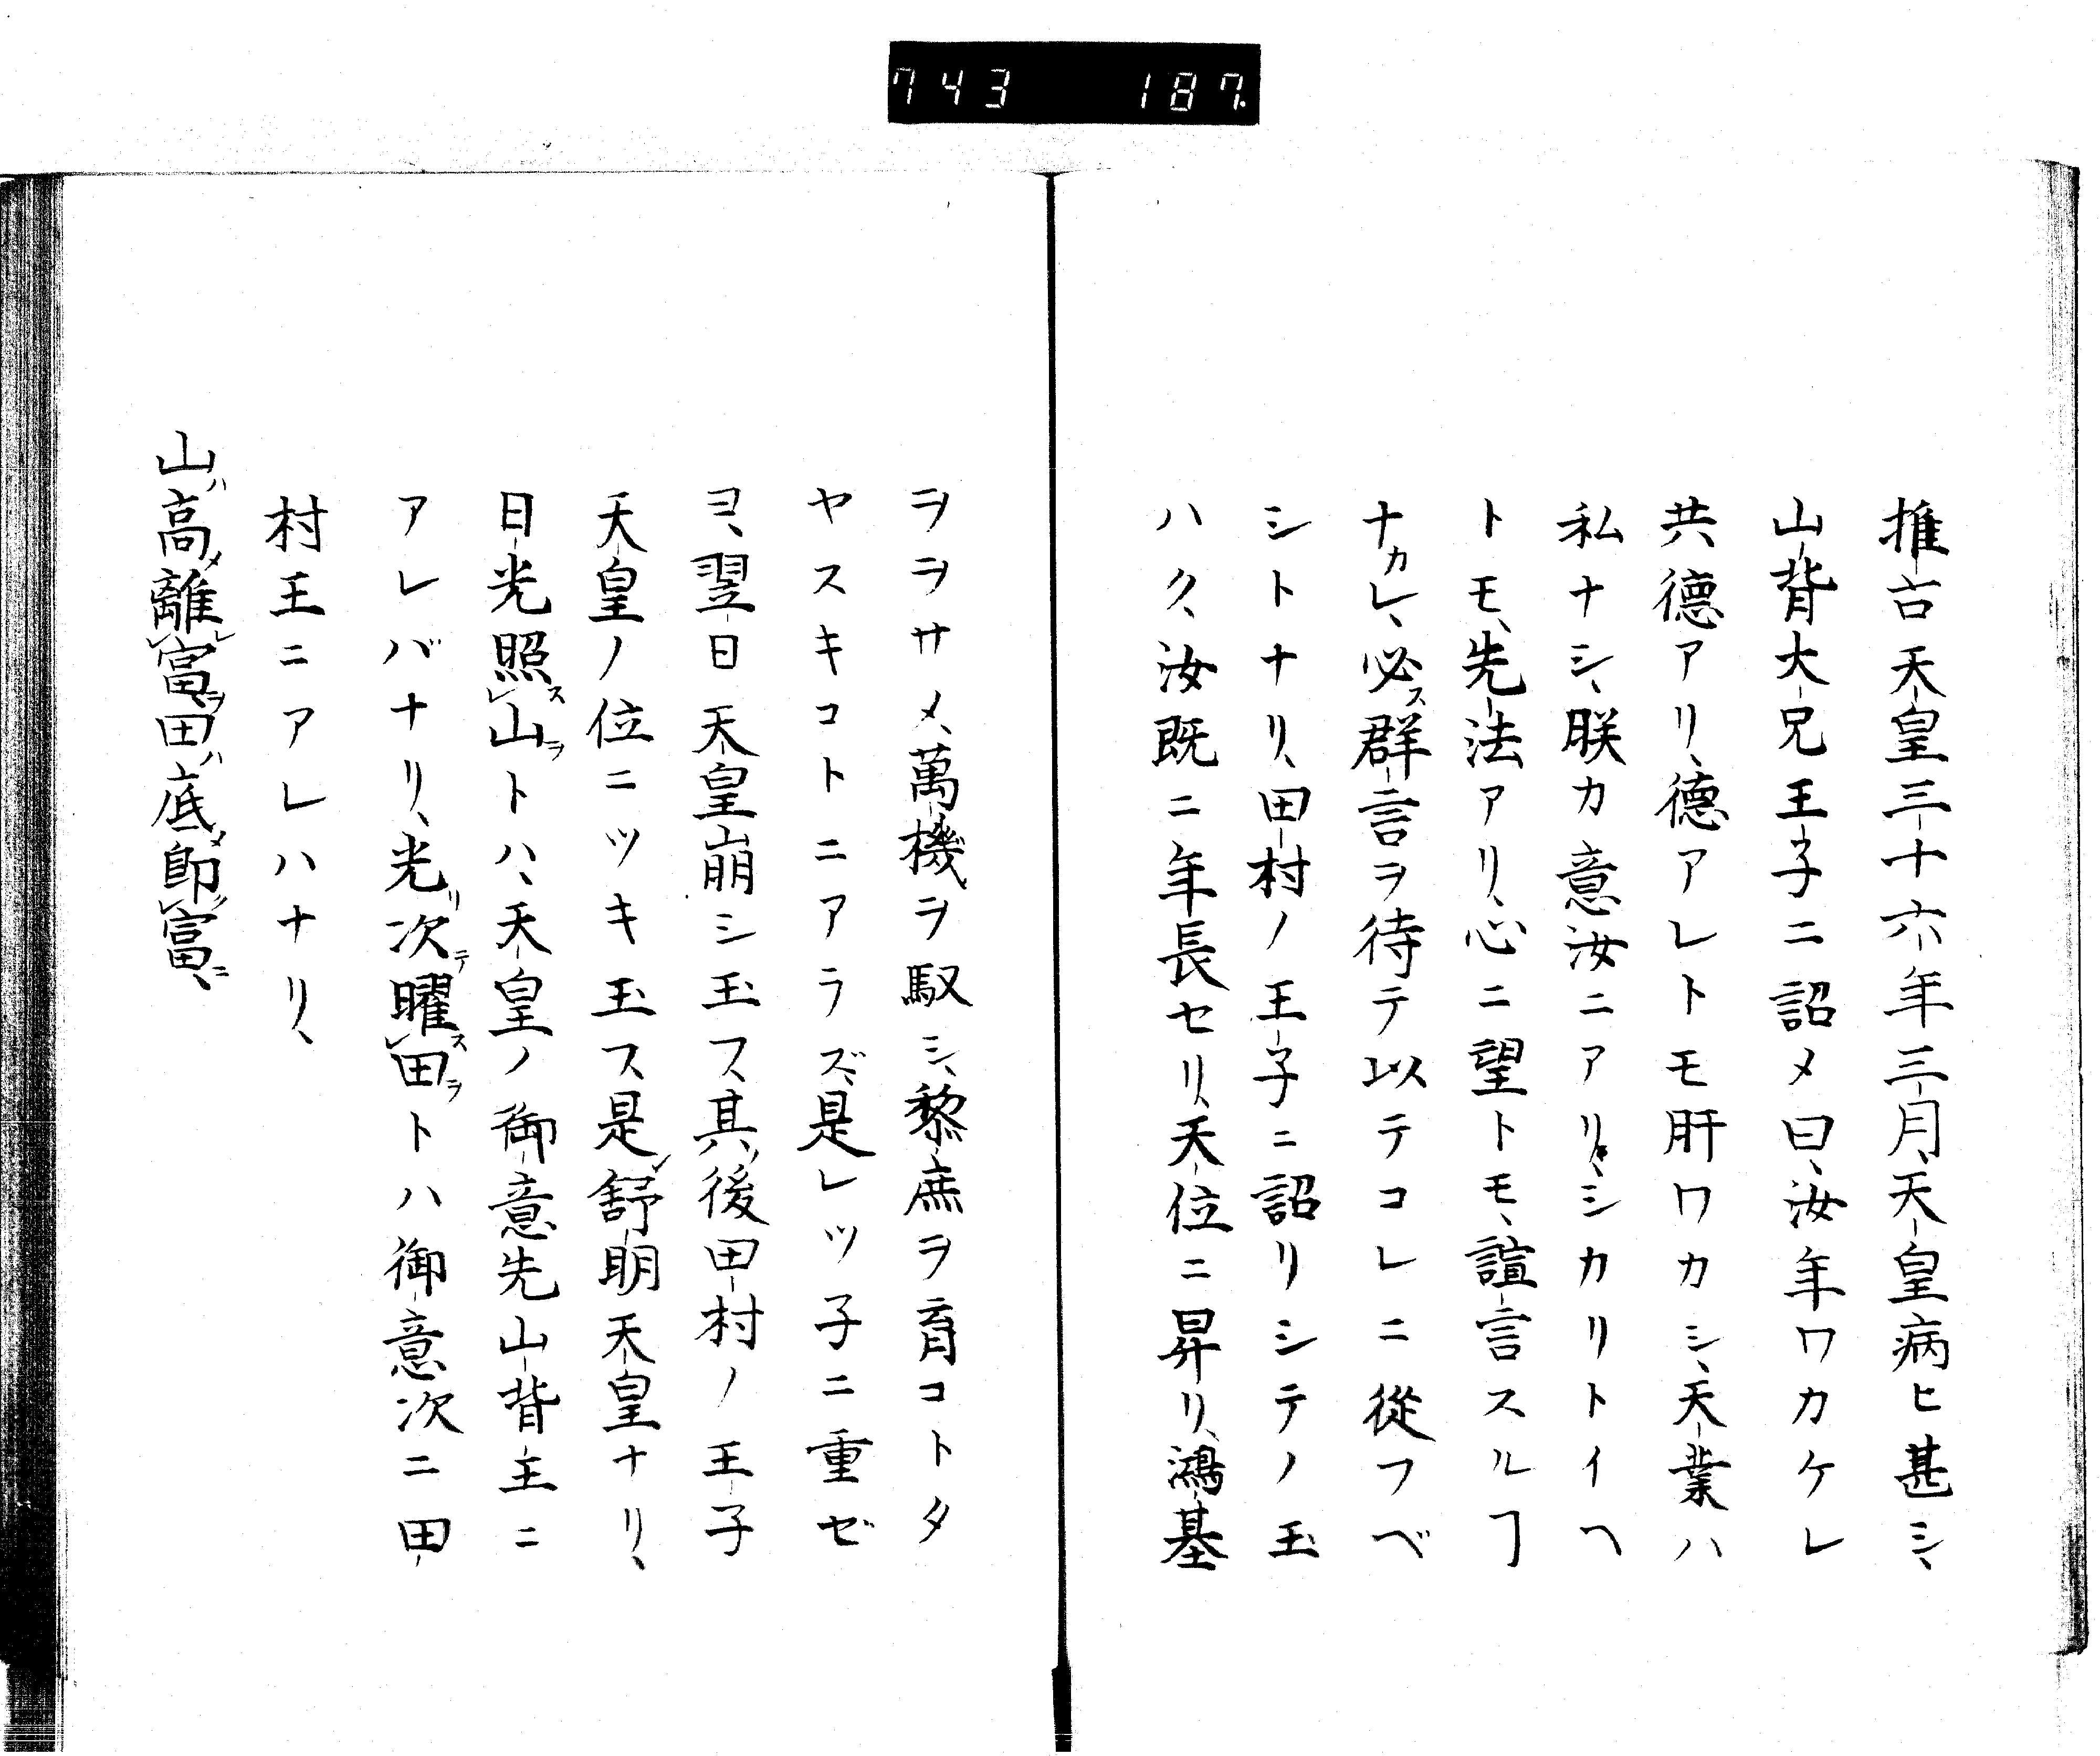 743 187
推古天皇三十六年三月、天皇病ヒ甚シ、
山背大兄王子ニ詔メ曰、汝年ワカケレ
共、徳アリ、徳アレトモ肝ワカシ、天業ハ
私ナシ、朕カ意汝ニアリ、シカリトイヘ
トモ、先法アリ、心ニ望トモ、諠言スルヿ
ナカレ、必ス群言ヲ待テ以テコレニ從フベ
シトナリ、田村ノ王子ニ詔リシテノ玉
ハク、汝既ニ年長セリ、天位ニ昇リ、鴻基
ヲヲサメ、萬機ヲ馭シ、黎庶ヲ育コトタ
ヤスキコトニアラズ、是レツ子ニ重ゼ
ヨ、翌日天皇崩シ玉フ、其ノ後田村ノ王子
天皇ノ位ニツキ玉フ、是レ舒明天皇ナリ、
日光照スレ山ヲトハ、天皇ノ御意先山背王ニ
アレバナリ、光リ次テ曜スレ田ヲトハ御意次ニ田
村王ニアレハナリ、
山ハ高メ離レレ富ヲ田ハ底メ即ノレ富ニ、